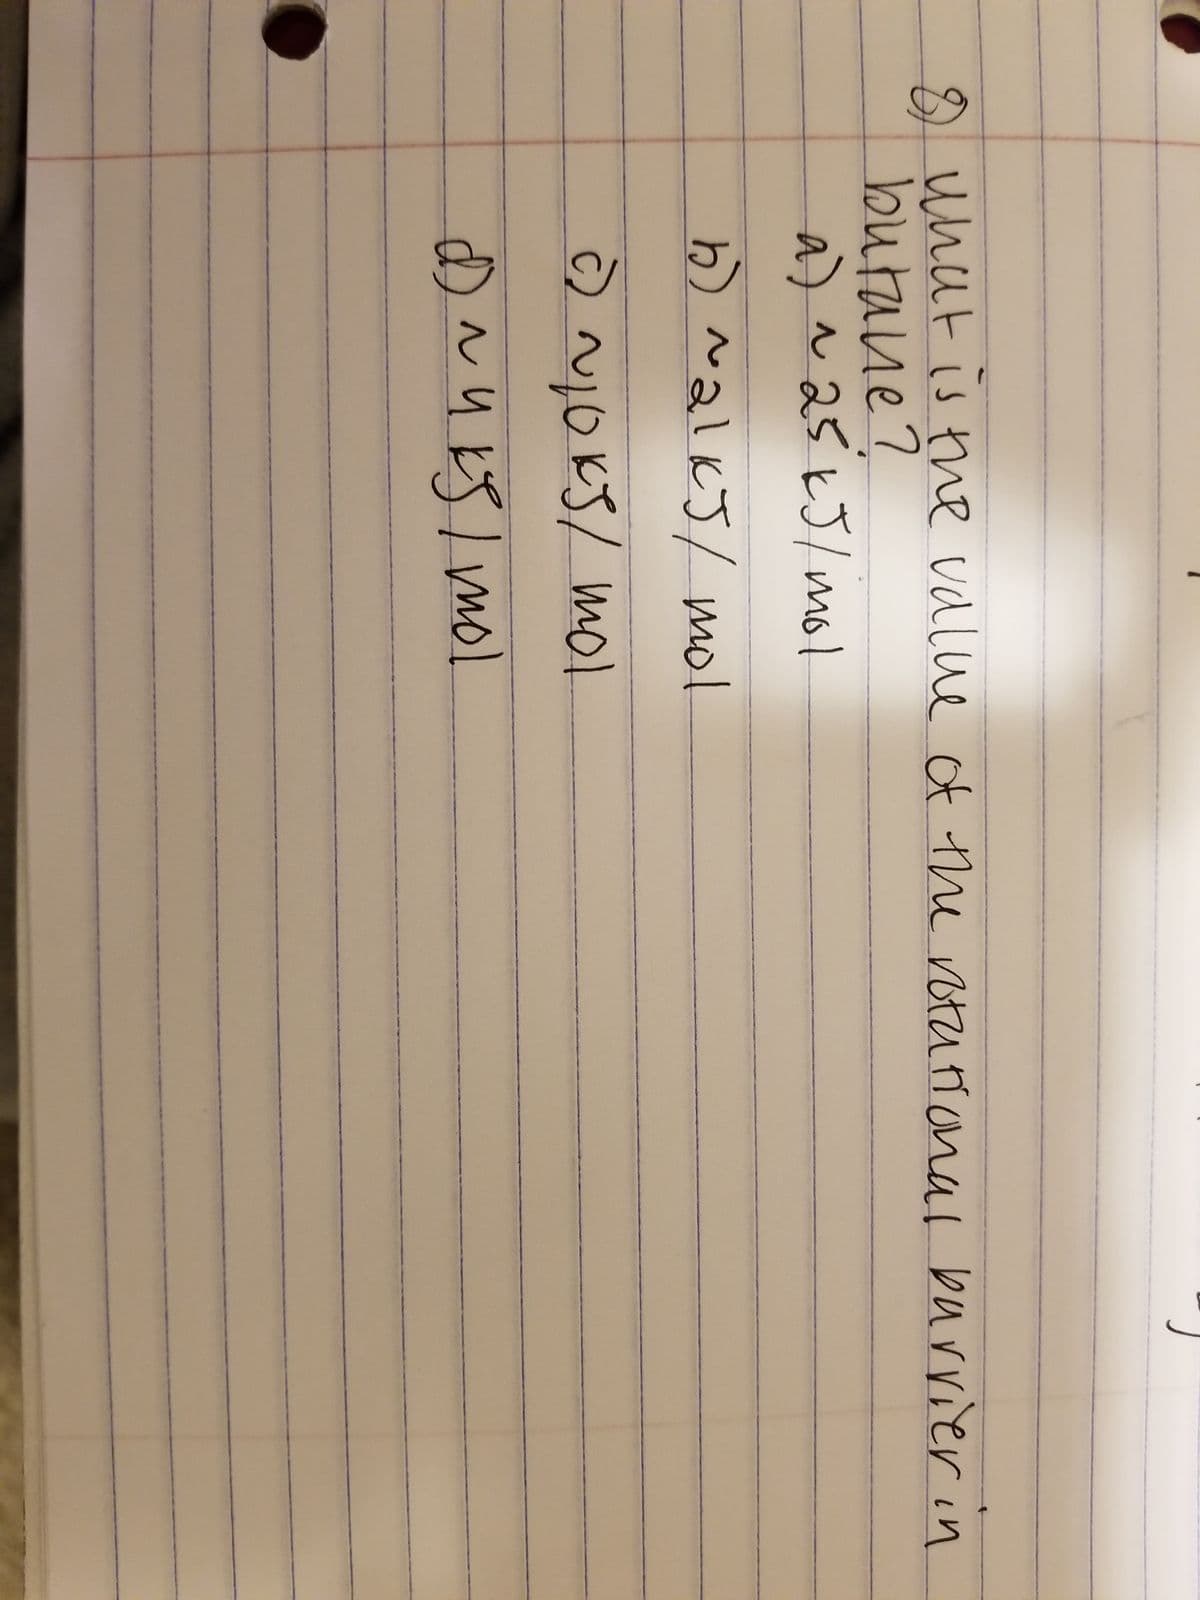 8) What is the value of the rotational barrier in
butane?
a) ~25 kJ/mol
b) ~21 kJ/mol
c) ~10 kJ/mol
d) ~4 kJ/mol